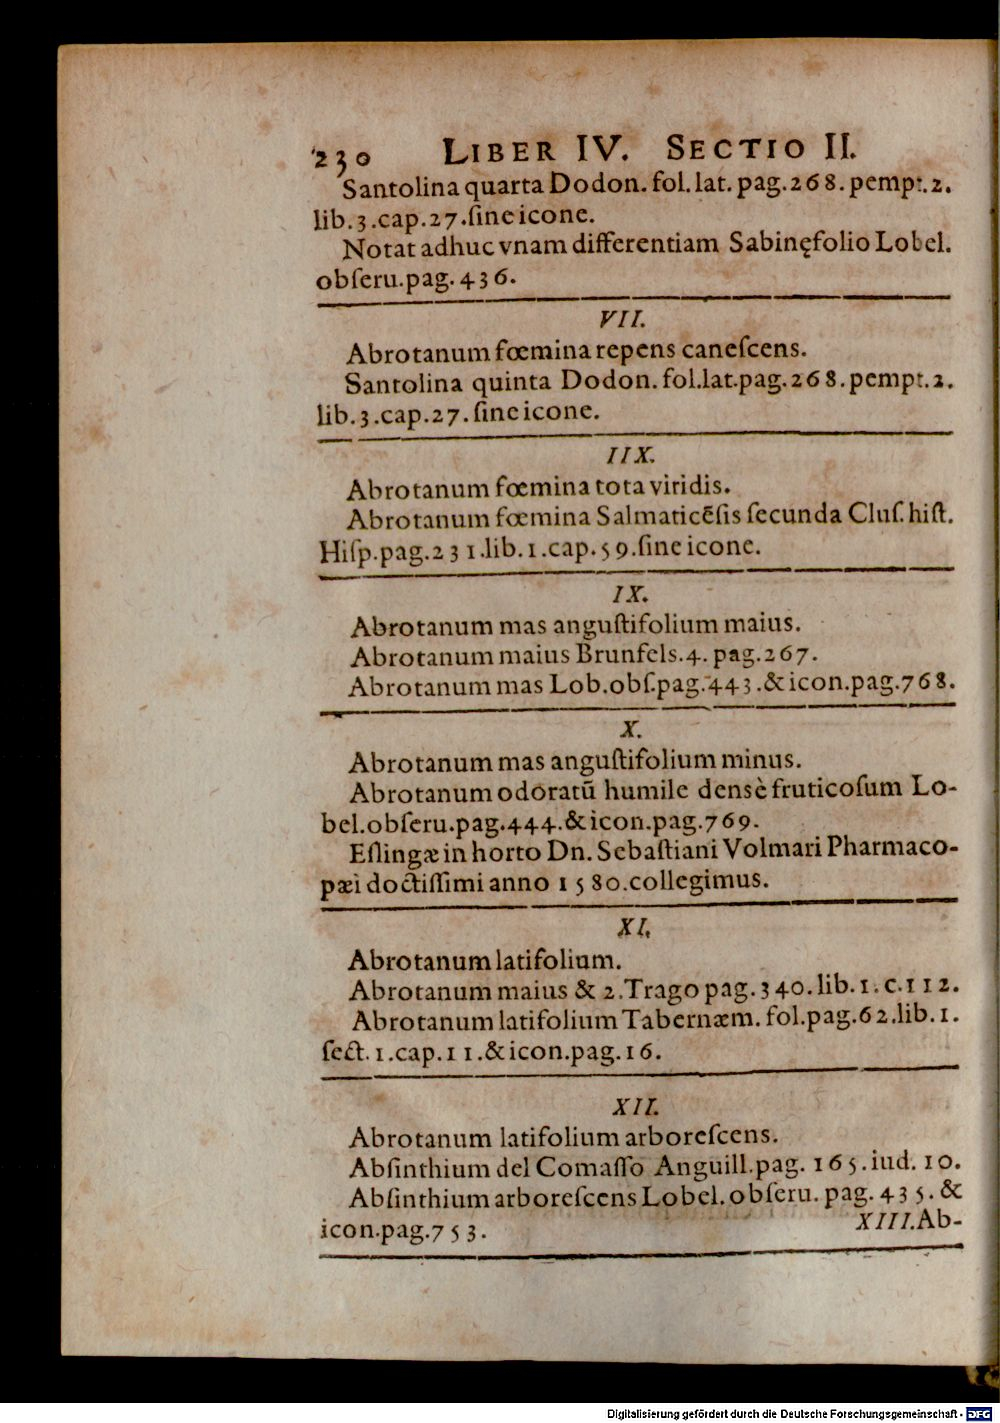 230 LIBER IV. SECTIO II.
Santolina quarta Dodon. fol. lat. pag. 268. pempt. 2.
lib. 3. cap. 27. ſine icone.
Notat adhuc vnam differentiam Sabinęfolio Lobel.
obſeru. pag. 436.
VII.
Abrotanum fœmina repens caneſcens.
Santolina quinta Dodon. fol. lat. pag. 268. pempt. 2.
lib. 3. cap. 27. ſine icone.
IIX.
Abrotanum fœmina tota viridis.
Abrotanum fœmina Salmaticẽſis ſecunda Cluſ. hiſt.
Hiſp. pag. 231. lib. 1. cap. 59. ſine icone.
IX.
Abrotanum mas anguſtifolium maius.
Abrotanum maius Brunfels. 4. pag. 267.
Abrotanum mas Lob. obſ. pag. 443. & icon. pag. 768.
X.
Abrotanum mas anguſtifolium minus.
Abrotanum odoratũ humile densè fruticoſum Lo-
bel. obſeru. pag. 444. & icon. pag. 769.
Eſlingæ in horto Dn. Sebaſtiani Volmari Pharmaco-
pæi doctiſſimi anno 1580. collegimus.
XI.
Abrotanum latifolium.
Abrotanum maius & 2. Trago pag. 340. lib. 1. c. 112.
Abrotanum latifolium Tabernæm. fol. pag. 62. lib. 1.
ſect. 1. cap. 11. & icon. pag. 16.
XII.
Abrotanum latifolium arboreſcens.
Abſinthium del Comaſſo Anguill. pag. 165. iud. 10.
Abſinthium arboreſcens Lobel. obſeru. pag. 435. &
icon. pag. 753.
XIII. Ab-
Digitalisierung gefördert durch die Deutsche Forschungsgemeinschaft - DFG